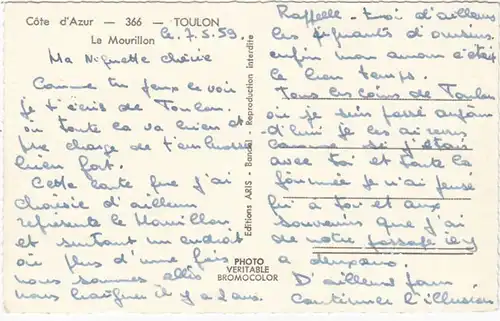 Côte d'Azur — 366 — TOULON
Le Mourillon
le 7.5.59
Ma Niquette chérie
Comme tu peux le voir
je t'écris de Toulon.
où toute ça va bien et
me charge de t'embrasser
bien fort.
Cette carte que j'ai
choisie d'ailleurs
représente le Mourillon
et surtout un endroit
où plus d'une fois
nous sommes allés
nous baigner il y a 2 ans.
Editions ARIS - Bandol - Reproduction interdite
PHOTO
VERITABLE
BROMOCOLOR
Raffelle - toi d'ailleurs
les piquants d'oursins
enfin mon amour c'était
le bon temps.
Tous les coins de Toulon
où je suis passé aujour
-d'hui je les ai revus
comme si j'étais
avec toi et toute la
journée je n'ai pensé
qu'à toi et aux
souvenirs que j'ai
de notre passage il y
a deux ans.
D'ailleurs pour
continuer l'illusion